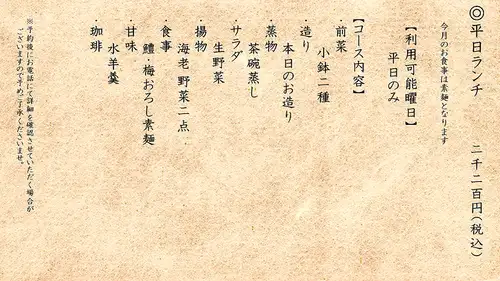 ◎平日ランチ　二千二百円(税込)
今月のお食事は素麺となります
【利用可能曜日】
平日のみ
【コース内容】
・前菜
小鉢二種
・造り
本日のお造り
・蒸物
茶碗蒸し
・サラダ
生野菜
・揚物
海老 野菜二点
・食事
鱧・梅おろし素麺
・甘味
水羊羹
・珈琲
※予約後にお電話にて詳細を確認させていただく場合が
ございますので予めご了承くださいませ。